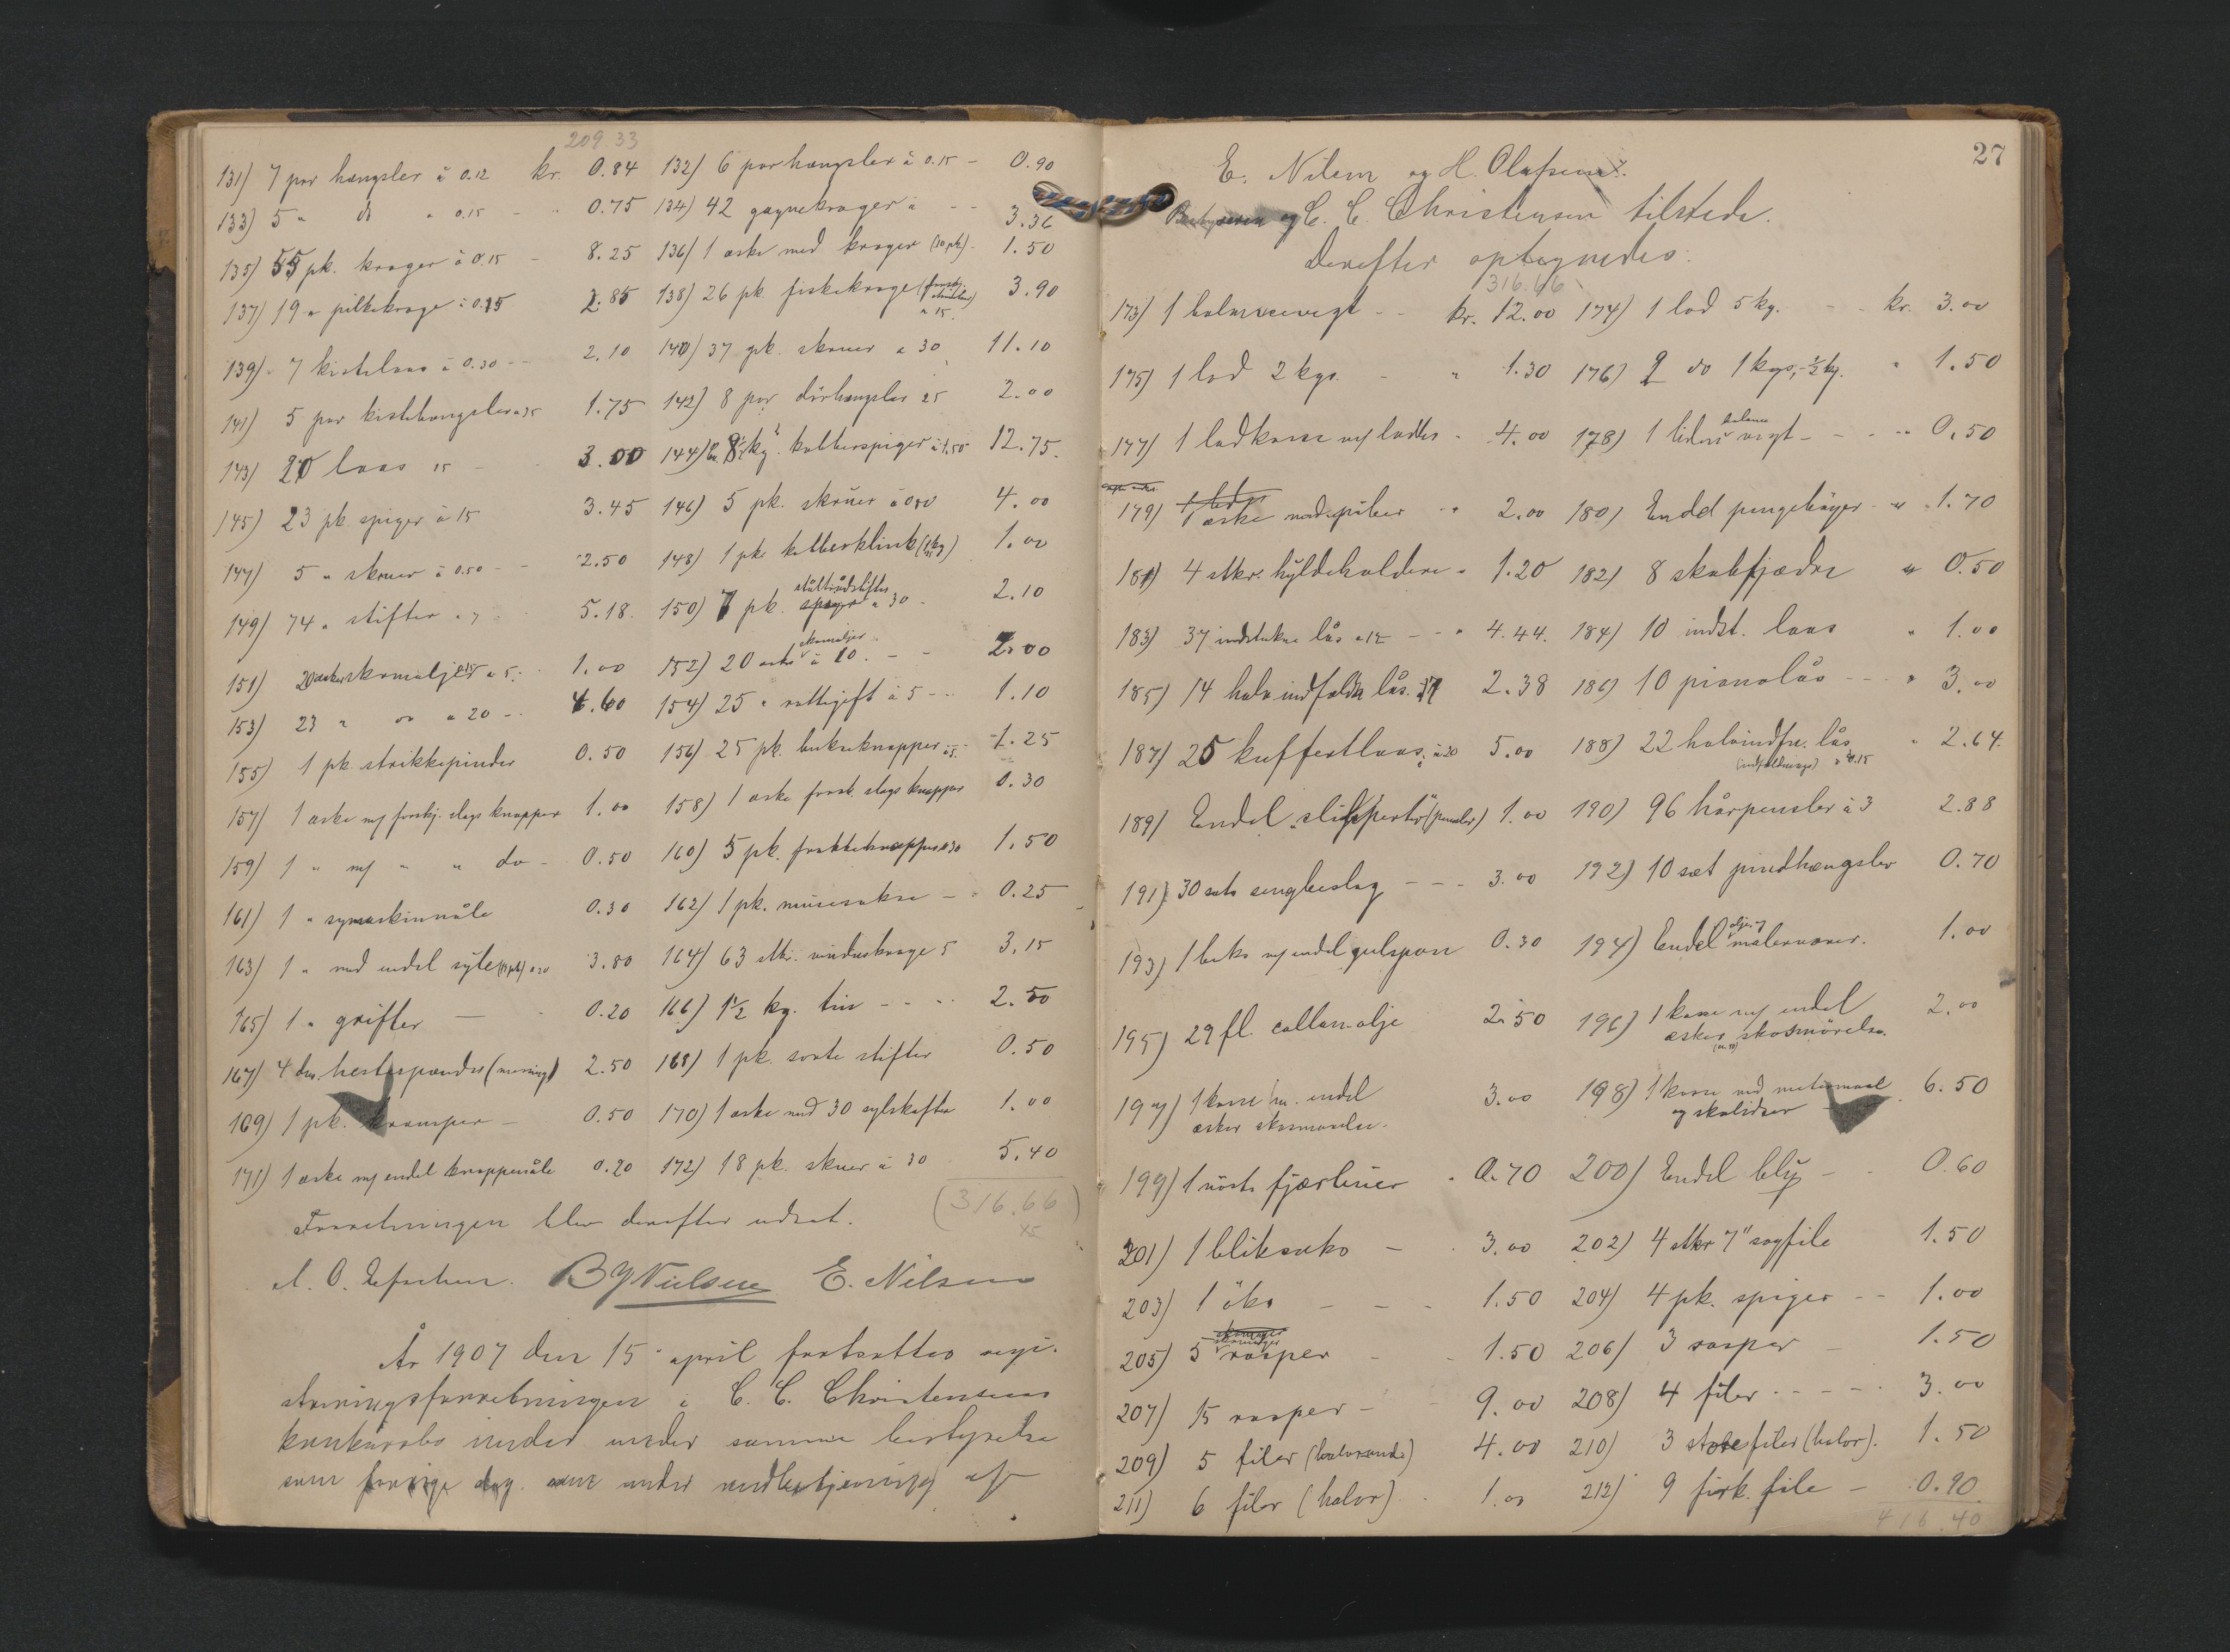 209.33
131) 7 par hængsler à 0.12 kr. 0.84 132) 6 par hængsler à 0.15 - 0.90
133) 5 " do " 0.15 - " 0.75 134) 42 gagnekroger à - - 3.36
135) 55 pk. kroger à 0.15 - 8.25 136) 1 æske med kroger (10 pk). 1.50
137) 19 " pilkekroge à 0.15 2.85 138) 26 pk. fiskekroge (forskj. 3.90
" 15.
139) 7 kistelaas à 0.30 - - 2.10 140) 37 pk. skruer a 30 11.10
141) 5 par kistehængsler a 35 1.75 142) 8 par dörhængsler 25 2.00
143) 20 laas 15 - 3.00 144) 8½ kg. kobberspiger à 1.50 12.75.
145) 23 pk. spiger à 15 3.45 146) 5 pk. skruer à 0.80 4.00
147) 5 " skruer à 0.50 - - 2.50 148) 1 pk. kobberklink (1 kg) 1.00
ståltrådstifter
149) 74 " stifter " 7 5.18. 150) 7 pk. spiger a 30 - 2.10
skomaljer
151) 20 æsker skomaljer a 5. 1.00 152) 20 æsker à 10. - - 2.00
153) 23 " do a 20 - 4.60 154) 25 " rottegift à 5 - - 1.10
155) 1 pk. strikkepinder 0.50 156) 25 pk. bukseknapper à 5. - 1.25
157) 1 æske m/ forskj. slags knapper 1.00 158) 1 æske forsk. slags knapper 0.30
159) 1 " m/ " " do - 0.50 160) 5 pk. frakkeknapper a 30 1.50
161) 1 " symaskinnåle 0.30 162) 1 pk. musesakse - - 0.25
163) 1 " med endel syle (19 pk) a 20 3.80 164) 63 stkr. vinduskroge 5 3.15
165) 1 " grifler - 0.20 166) 1½ kg. tin - - - - 2.50
167) 4 dus. hestespænder (messing) 2.50 168) 1 pk. sorte stifter 0.50
169) 1 pk. kramper - 0.50 170) 1 æske med 30 sylskafter 1.00
171) 1 æske m/ endel knappenåle 0.20 172) 18 pk. skruer à 30 5.40
Forretningen blev derefter udsat. (316.66)
B J Nielsen E. Nilsen
År 1907 den 15 april fortsattes regi-
streringsforretningen i C. C. Christensens
konkursbo under samme bestyrelse
som forrige dag under medbetjening af
27
E. Nilsen og H. Olafsen.
Bestyreren og C. C. Christensen tilstede.
Derefter optegnedes:
316.66
173) 1 balancevegt - - kr. 12.00 174) 1 lod 5 kg. - - kr. 3.00
175) 1 lod 2 kgr. - " 1.30 176) 2 do 1 kgr, - ½ kg. " 1.50
177) 1 lodkasse m/ lodder - 4.00 178) 1 liden balance vegt - - - " 0.50
179) 1 æske med piber - " 2.00 180) Endel pengebøger - " 1.70
181) 4 stkr. hyldeholdere " 1.20 182) 8 skabfjædre " 0.50
183) 37 indstukne lås a 12 - - " 4.44. 184) 10 indst. laas " 1.00
185) 14 halv indfældte lås. 17 2.38 186) 10 pianolås - - - " 3.00
187) 25 kuffertlaas à 20 5.00 188) 22 halvindfæ. lås " 2.64.
(indfældnings) a 0.15
189) Endel "slippertér" (pensler) 1.00 190) 96 hårpensler à 3 2.88
191) 30 sæt sengbeslag - - - 3.00 192) 10 sæt pindhængsler 0.70
193) 1 boks m/ endel gulspon 0.30 194) Endel oljer og malervarer. 1.00
195) 29 fl. collan-olje 2.50 196) 1 kasse m/ endel 2.00
æsker skosmörelse.
197) 1 kasse m. endel 3.00 198) 1 kasse med metermaal 6.50
æsker skosmørelse. og skolidser -
199) 1 nöste fjærlinier " 0.70 200) Endel bly - - 0.60
201) 1 bliksaks - 3.00 202) 4 stkr 7" sagfile 1.50
203) 1 öks - - - 1.50 204) 4 pk. spiger - - 1.00
205) 5 rasper - - 1.50 206) 3 rasper - 1.50
207) 15 rasper - - 9.00 208) 4 filer - - - - 3.00
209) 5 filer (halvrunde) 4.00 210) 3 store filer (halvr). 1.50
211) 6 filer (halvr) - 1.00 212) 9 firk. file - 0.90
416.40